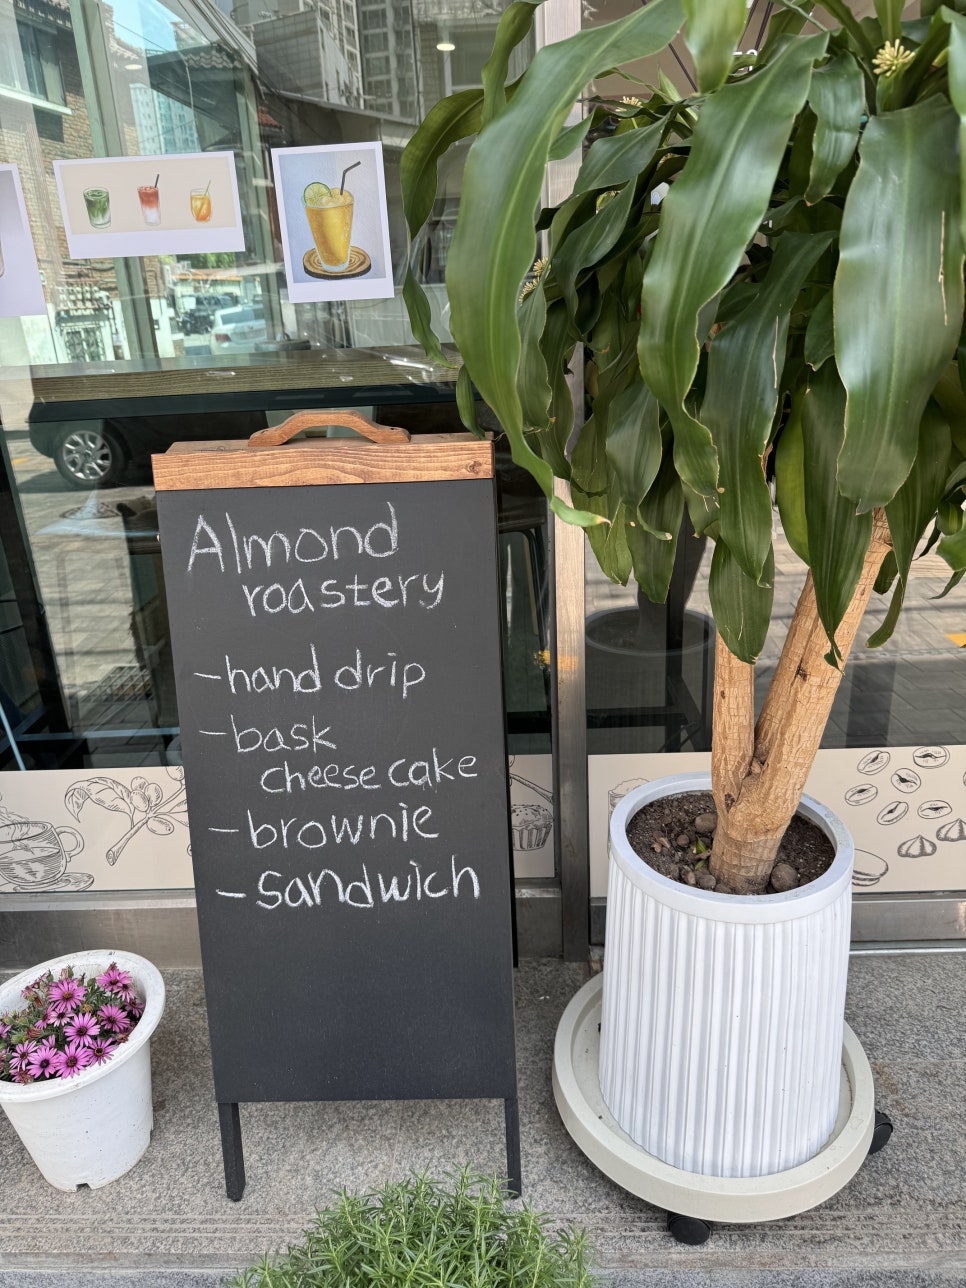 Almond
roastery
-hand drip
-bask
cheese cake
-brownie
-sandwich